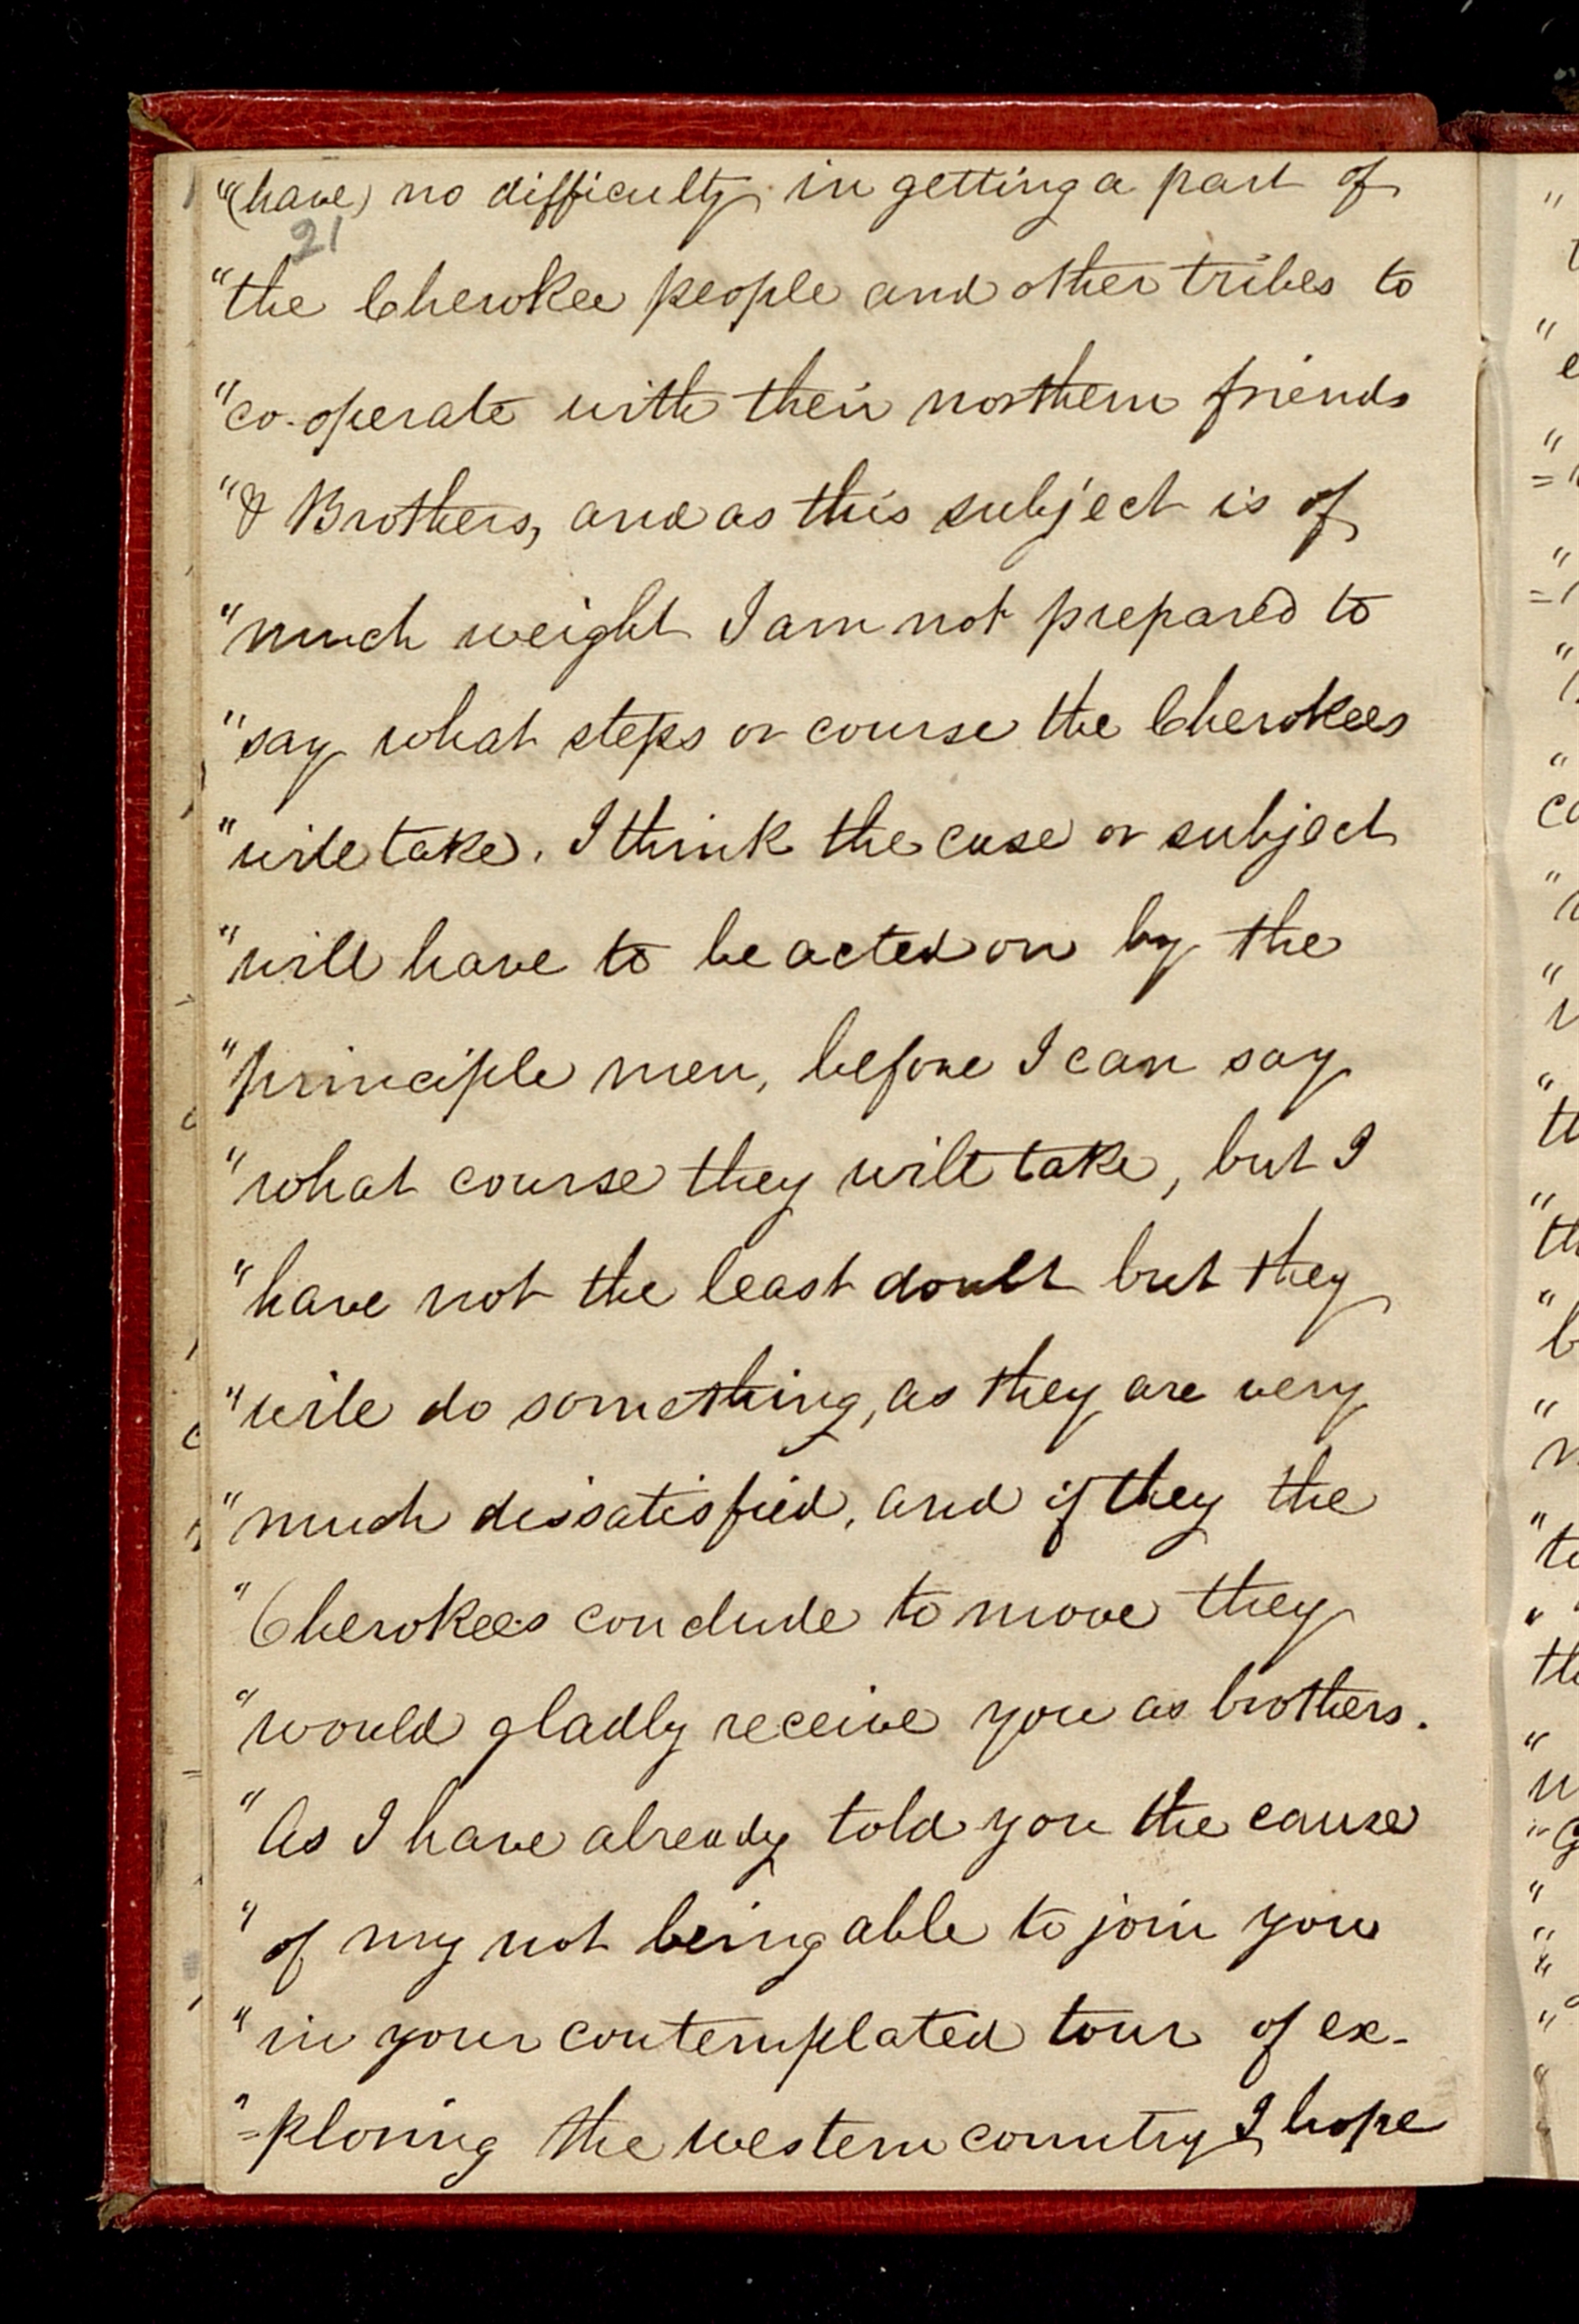 "(have) no difficulty in getting a part of
21
"the Cherokee people and other tribes to
"co-operate with their northern friends
"& Brothers, and as this subject is of
"much weight I am not prepared to
"say what steps or course the Cherokees
"will take. I think the case or subject
"will have to be acted on by the
"principle men, before I can say
"what course they will take, but I
"have not the least doubt but they
"will do something, as they are very
"much dissatisfied, and if they the
"Cherokees conclude to move they
"would gladly receive you as brothers.
"As I have already told you the cause
"of my not being able to join you
"in your contemplated tour of ex-
"=ploring the western country I hope